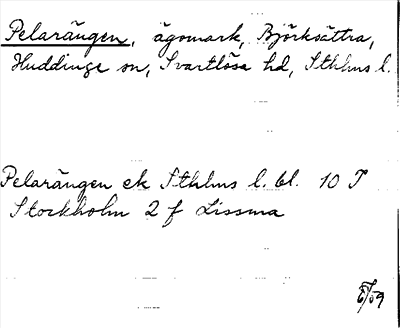 Pelarängen, ägomark, Björksättra,
Huddinge sn, Svartlösa hd, Sthlms l.
Pelarängen ek Sthlms l. bl. 10 I
Stockholm 2 f Lissma